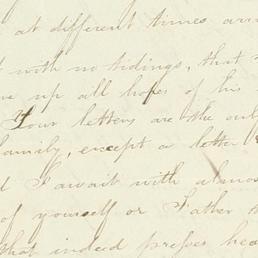 at different times arri
with no tidings, that
up all hopes of his
Your letters are the onl
family, except a letter
I await with almos
of yourself or Father
that indeed presses hea